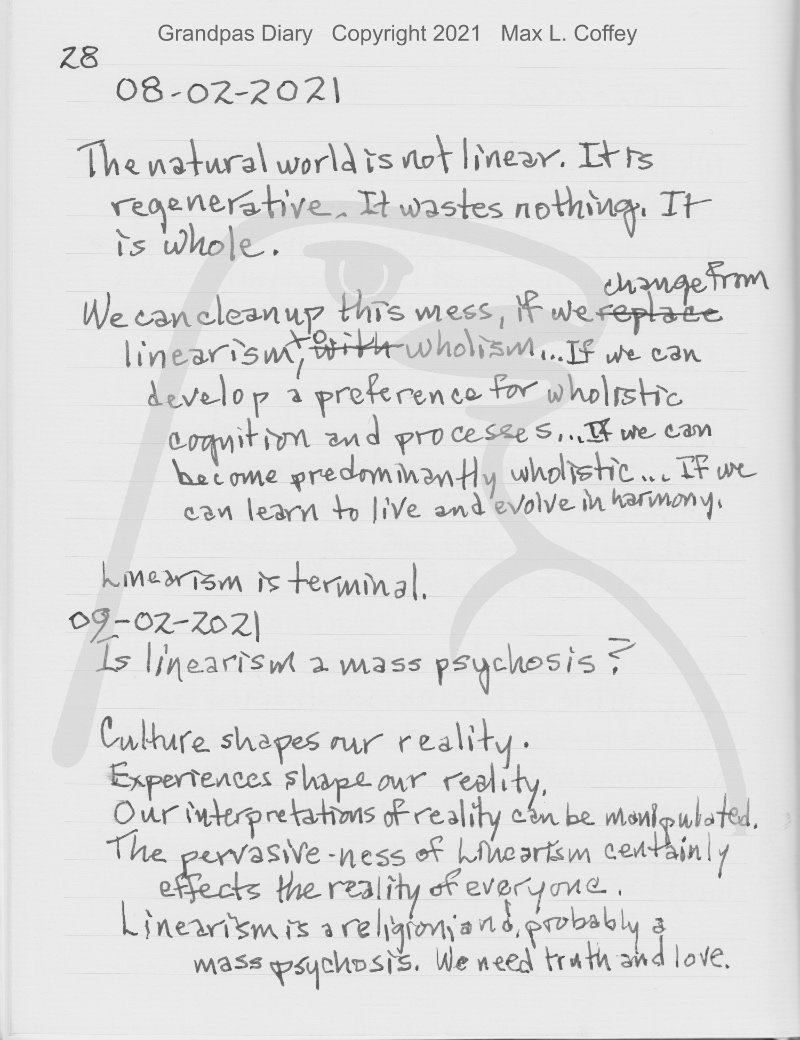 Grandpas Diary Copyright 2021 Max L. Coffey
28
08-02-2021
The natural world is not linear. It is
regenerative. It wastes nothing. It
is whole.
change from
We can clean up this mess, if we replace
to
linearism, with wholism... If we can
develop a preference for wholistic
cognition and processes... If we can
become predominantly wholistic... If we
can learn to live and evolve in harmony.
Linearism is terminal.
09-02-2021
Is linearism a mass psychosis?
Culture shapes our reality.
Experiences shape our reality.
Our interpretations of reality can be manipulated.
The pervasive-ness of Linearism centainly
effects the reality of everyone.
Linearism is a religion; and, probably a
mass psychosis. We need truth and love.